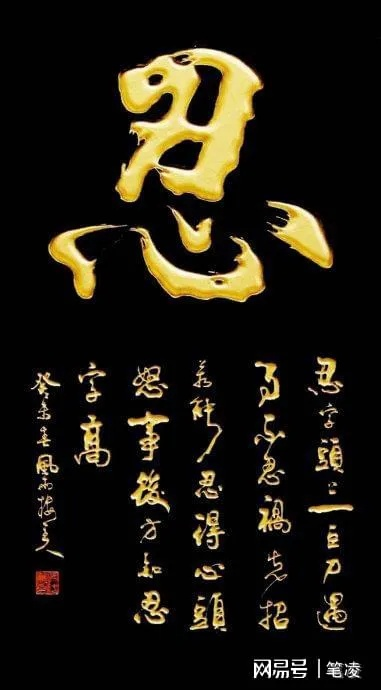 忍
忍字頭上一巨刀遇
事不忍禍先招
若能忍得心頭
怒事後方知忍
字高
癸未春風雨
网易号 | 笔凌